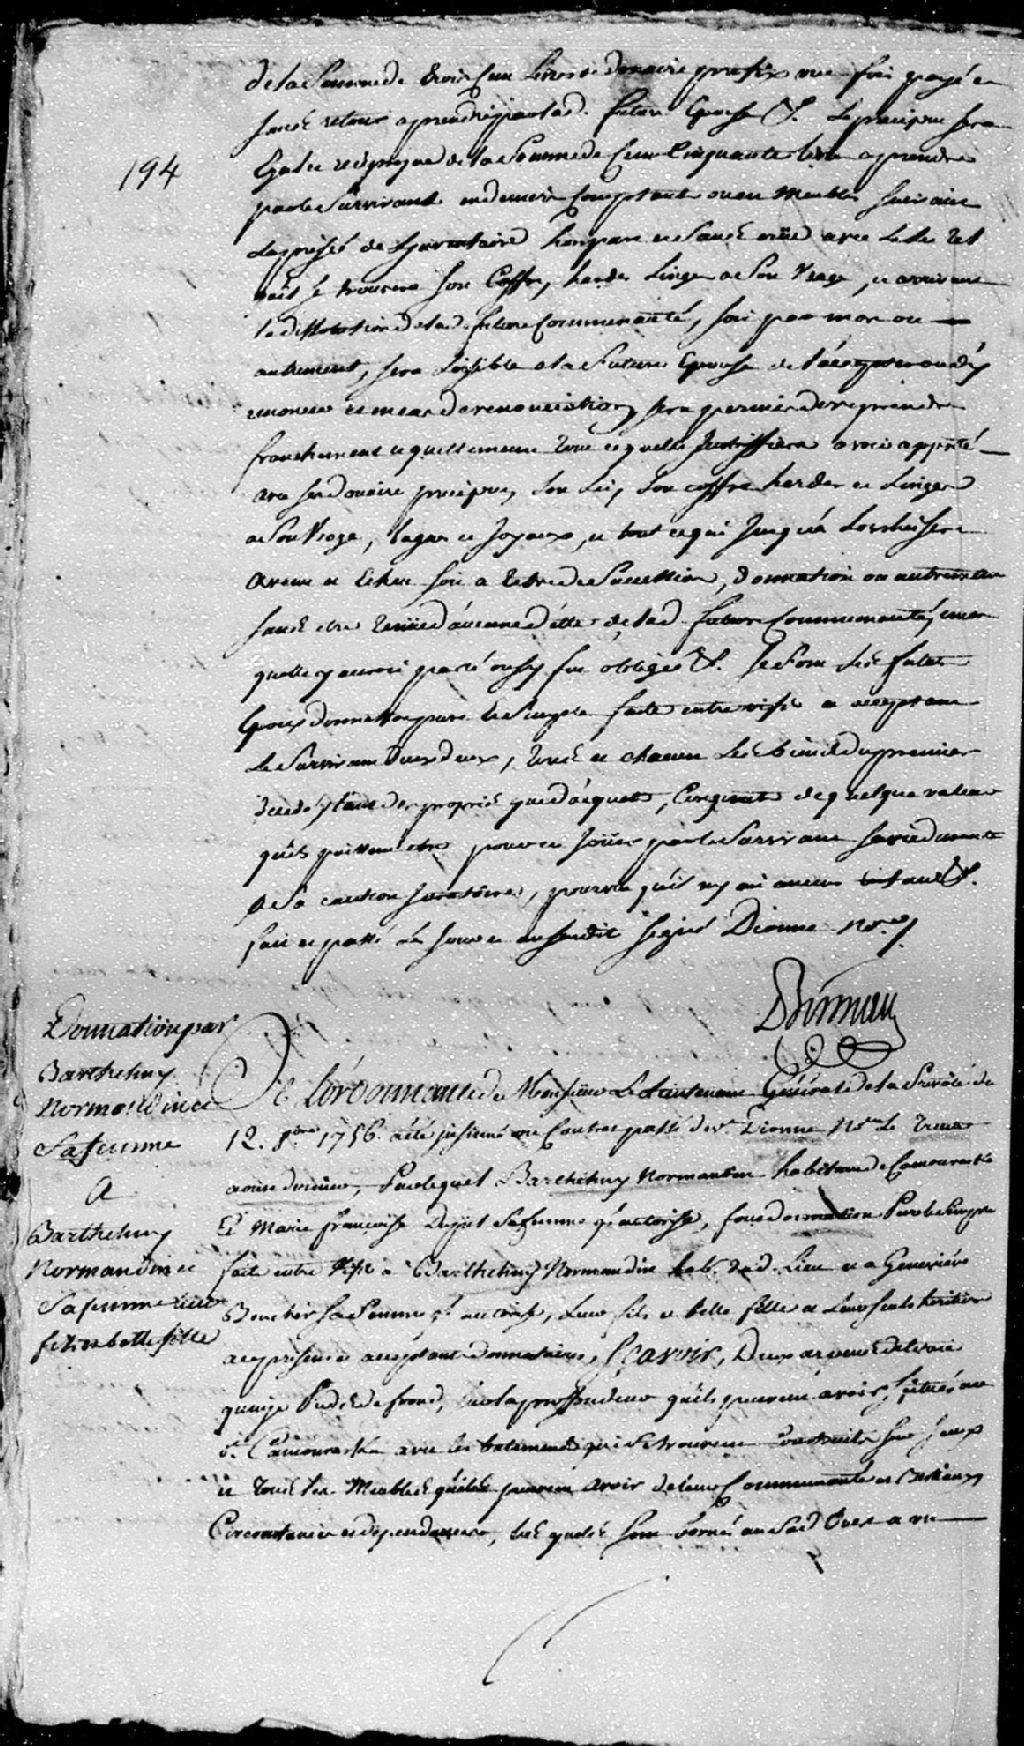 de la Somme de trois Cent Livres de douaire prefix une fois payé et
sans retour a prendre par lad. future Epouse &. Le preciput sera
194
Egal et reciproque de la Somme de Cent Cinquante livres a prendre
par le Survivant en deniers Comptant ou en Meubles Suivant
la prisée de Linventaire hors part et Sans crüe avec le lit tel
quil se trouvera son Coffre, hardes Linges a Son Usage, et arrivant
la dissolution de lad. future Communauté, soit par mort ou
autrement, sera Loisible a la Future Epouse de l'accepter ou d'y
renoncer et en cas de renonciation, sera permis de reprendre
franchement et quittement tout ce quelle Justiffiera avoir apporté
avec son douaire preciput, Son Lit, Son coffre hardes et Linges
a Son Usage, bagues et Joyaux, et tout ce qui Jusqu'à Lors lui sera
avenu et Echu soit a titre de Succession, donnation ou autrement
sans etre tenüe d'aucune dette de lad. future Communauté, encor
quelle y auroit parlé ou s'y fut obligée &. Se sont lesd. futurs
Epoux donnation pure et Simple faite entre vifs et acceptant
le Survivant d'eux deux, tous et chacun les biens du premier
decedé, tant de propres que d'aquets, Conquets de quelque valeur
qu'ils puissent etre pour en Joüir par le Survivant sa vie durante
a Sa caution Juratoire, pourvu qu'il n'y ait aucun enfans &.
fait et passé les Jour et an susdit Signé Dionne Nore.
Dionne
Donnation par
Barthelemy
Normandin et
Safemme
A
Barthelemy
Normandin et
Safemme leur
fils et belle fille
De l'ordonnance de Monsieur Le Lieutenant Général de la Prévôté du
12. 8bre 1756. a été insinué un Contrat passé dev. Dionne Nore Le treize
aoust dernier, Par lequel Barthelemy Normandin habitant de Camouraska
Et Marie françoise Safemme qu'il autorise, font donnation Pure et Simple
faite entre Vifs a Barthelemy Normandin hab. dud. Lieu et a Geneviève
Boucher Sa femme qu'il autorise, Leur fils et belle fille et Leur seuls heritiers
a ce présens et acceptant donnataires, Sçavoir, Deux arpens de terre
quinze Pieds de front, sur la proffondeur qu'ils peuvent avoir, Scitués au
d. Camouraska avec les batimens qui se trouvent construits sur iceux
et tous les Meubles qu'ils peuvent avoir de leur Communauté et Bestiaux
Circonstances et dépendances, lesquels sont bornés au Sud Ouest a un